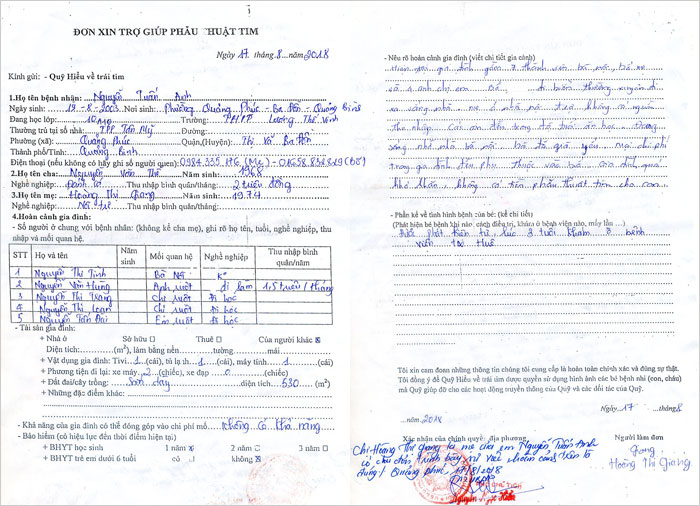 ĐƠN XIN TRỢ GIÚP PHẪU THUẬT TIM
Ngày 17 tháng 8 năm 2018
Kính gửi: - Quỹ Hiểu về trái tim
1.Họ tên bệnh nhân: Nguyễn Tuấn Anh
Ngày sinh: 19-8-2003 Nơi sinh: Phường Quảng Phúc - Ba Đồn - Quảng Bình
Đang học lớp: 10 Trường: THPT Lương Thế Vinh
Thường trú tại số nhà: TPP Tân Mỹ Đường:
Phường (xã): Quảng Phúc Quận,(Huyện): Thị Xã Ba Đồn
Thành phố/Tỉnh: Quảng Bình
Điện thoại (nếu không có hãy ghi số người quen): 0984.335.176 (Mẹ) - 01658.838829 (Bố)
2.Họ tên cha: Nguyễn Văn Thế Năm sinh: 1968
Nghề nghiệp: Đánh cá Thu nhập bình quân/tháng: 2 triệu đồng
3.Họ tên mẹ: Hoàng Thị Giang Năm sinh: 1974
Nghề nghiệp: Nội trợ Thu nhập bình quân/tháng:
4.Hoàn cảnh gia đình:
- Số người ở chung với bệnh nhân: (không kể cha mẹ), ghi rõ họ tên, tuổi, nghề nghiệp, thu
nhập và mối quan hệ.
STT Họ và tên Năm sinh Mối quan hệ Nghề nghiệp Thu nhập bình quân/năm
1 Nguyễn Thị Tình Bà Nội K°
2 Nguyễn Văn Hùng Anh ruột đi làm 1,5 triệu / tháng
3 Nguyễn Thị Trang Chị ruột Đi học
4 Nguyễn Thị Loan Chị ruột Đi học
5 Nguyễn Tấn Đại Em ruột đi học
- Tài sản gia đình:
+ Nhà ở Sở hữu Thuê Của người khác
Diện tích: (m²), làm bằng nền tường mái
+ Vật dụng gia đình: Tivi 1 (cái), tủ lạnh 1 (cái), máy tính 1 (cái)
+ Phương tiện đi lại: xe máy 2 (chiếc), xe đạp 0 (chiếc)
+ Đất đai/cây trồng: diện tích 530 (m²)
+ Những đặc điểm khác:
- Khả năng của gia đình có thể đóng góp vào chi phí mổ. Không có khả năng
- Bảo hiểm (có hiệu lực đến thời điểm hiện tại)
+ BHYT học sinh 1 năm 2 năm 3 năm
+ BHYT trẻ em dưới 6 tuổi có không
- Nêu rõ hoàn cảnh gia đình (viết chi tiết gia cảnh)
gia đình gồm 7 thành viên bà nội, bố mẹ
và 4 anh chị em. Bố đi biển thường xuyên đi
xa vắng nhà. mẹ ở nhà nội trợ không có nguồn
thu nhập. Các em đang trong độ tuổi ăn học. Đang
sống nhờ nhà bà nội. bà đã già yếu. Mọi chi phí
trong gia đình đều phụ thuộc vào bố. Gia đình quá
khó khăn, không có tiền phẫu thuật tim cho con.
- Phần kể về tình hình bệnh của bé: (kể chi tiết)
(Phát hiện bé bệnh khi nào, cách điều trị, khám ở bệnh viện nào, mấy lần....)
phát hiện từ lúc 3 tuổi khám ở bệnh
viện Huế
Tôi xin cam đoan những thông tin chúng tôi cung cấp là hoàn toàn chính xác và đúng sự thật.
Tôi đồng ý để Quỹ Hiểu về trái tim được quyền sử dụng hình ảnh các bé bệnh nhi (con, cháu)
mà Quỹ giúp đỡ cho các hoạt động truyền thông của Quỹ và các đối tác của Quỹ.
Ngày 17 tháng 8
năm 2018
Xác nhận của chính quyền địa phương
Người làm đơn
Chị Hoàng Thị Giang là mẹ của em Nguyễn Tuấn Anh
có trình bày về hoàn cảnh trên là
đúng / Quảng phúc, 17/8/2018
Giang
Hoàng Thị Giang